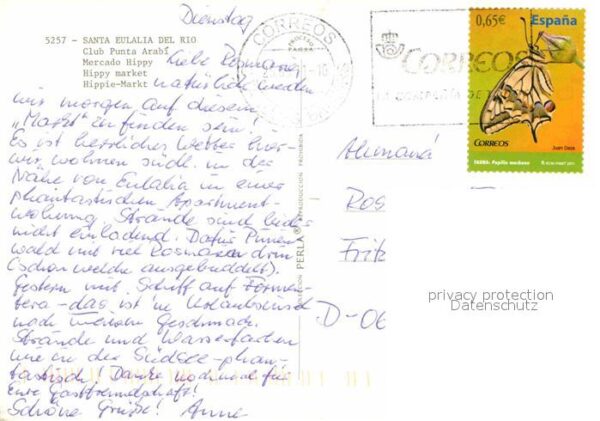 Dienstag
5257 - SANTA EULALIA DEL RIO
Club Punta Arabí
Mercado Hippy
Hippy market
Hippie-Markt
Liebe Rosmarie,
natürlich werden
wir morgen auf diesem
„Markt" zu finden sein!
Es ist herrliches Wetter hier
wir wohnen südl. in der
Nähe von Eulalia in einer
phantastischen Apartment-
wohnung. Strände sind leider
nicht einladend. Dafür Pinien
wald mit viel Rosmarin drin
(schon welche ausgebuddelt).
Gestern mit Schiff auf Formen-
tera - das ist 'ne Urlaubsinsel
nach meinem Geschmack.
Strände und Wasserfarben
wie in der Südsee - phan-
tastisch! Danke nochmal für
Eure Gastfreundschaft!
Schöne Grüße! Anne
COLECCION PERLA® REPRODUCCION PROHIBIDA
CORREOS
CORREOS
0,65€ España
CORREOS
Juan Casa
FAUNA: Papilio machaon
Alemaná
Ros
Fritz
D-06
privacy protection
Datenschutz